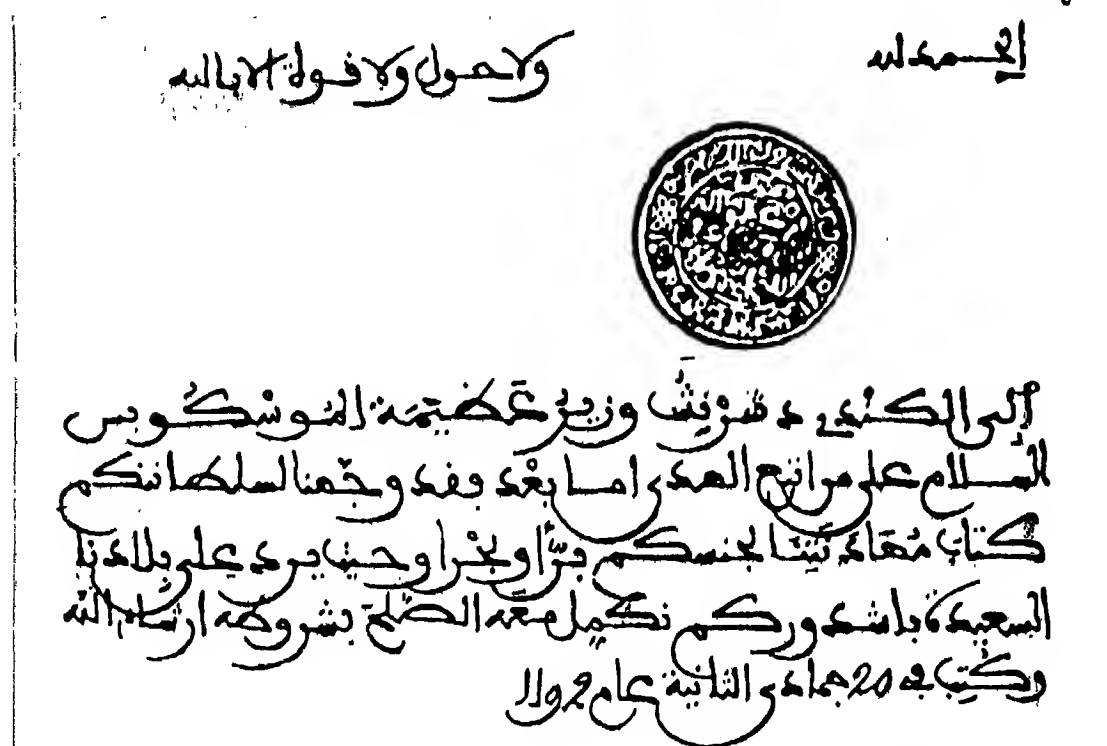 الحمد لله ولا حول ولا قوة الا بالله
إلى الكندي د شرنش وزير عظيمة الموسكوبس
السلام على من اتبع الهدى اما بعد فقد وجهنا لسلطانتكم
كتاب مهادنتنا لجنسكم برا وبحرا وحيث يرد على بلادنا
السعيدة باشدوركم نكمل معه الصلح بشروطه ان شاء الله
وكتب في 20 جمادى الثانية عام 1192